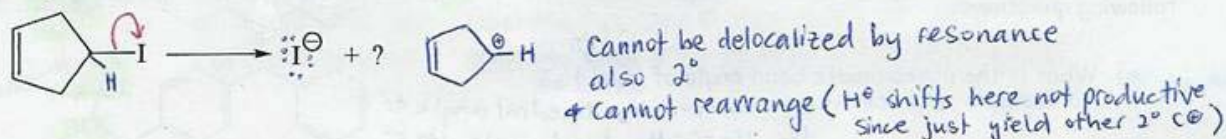 I
H
:I:⊖ + ?
⊕ H
Cannot be delocalized by resonance
also 2°
* Cannot rearrange (H⊖ shifts here not productive
since just yield other 2° C⊕)